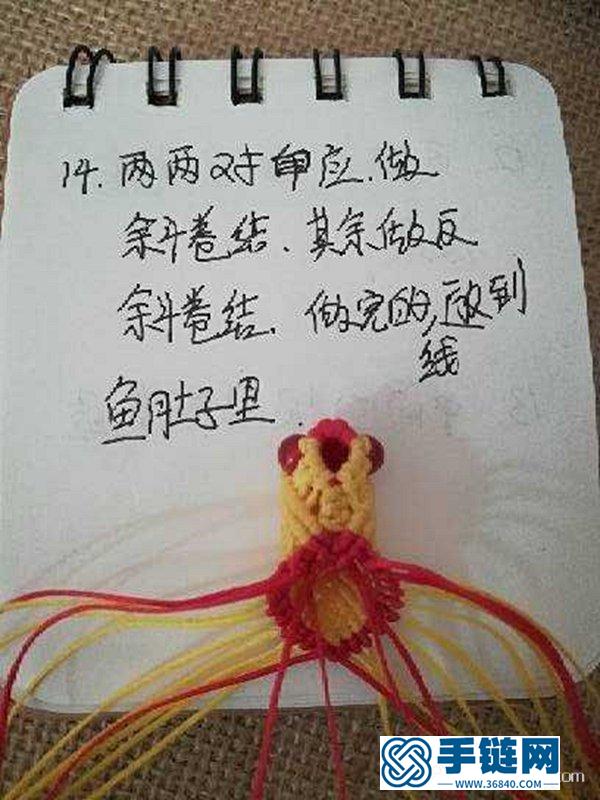 14. 两两对申应.做
余斗卷结、其余做反
余斗卷结. 做完的,放到
线
鱼肚子里.
手链网
WWW.36840.COM
om